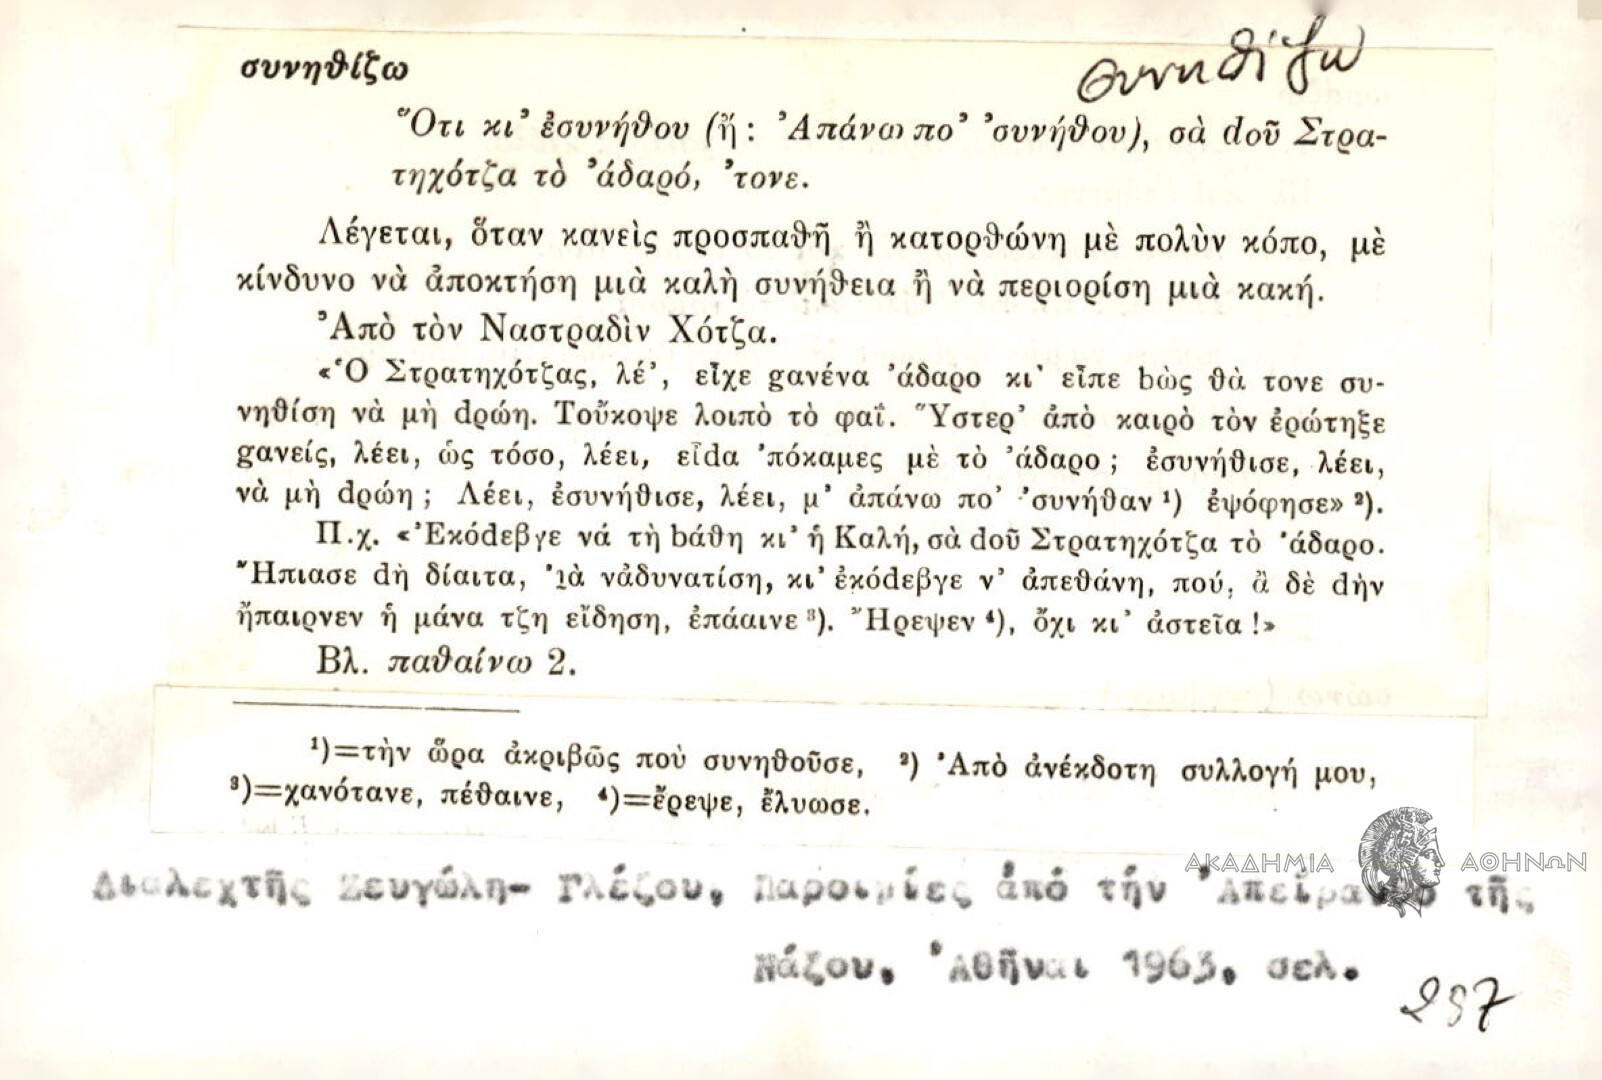 συνηθίζω
συνηθίζω
Ὅτι κι' ἐσυνήθου (ἤ: Ἀπάνω πο' 'συνήθου), σὰ dοῦ Στρα-
τηχότζα τὸ 'άδαρό, 'τονε.
Λέγεται, ὅταν κανεὶς προσπαθῆ ἢ κατορθώνη μὲ πολὺν κόπο, μὲ
κίνδυνο νὰ ἀποκτήση μιὰ καλὴ συνήθεια ἢ νὰ περιορίση μιὰ κακή.
Ἀπὸ τὸν Ναστραδὶν Χότζα.
«Ὁ Στρατηχότζας, λέ', εἶχε gανένα 'άδαρο κι' εἶπε bὼς θὰ τονε συ-
νηθίση νὰ μὴ dρώη. Τοὔκοψε λοιπὸ τὸ φαΐ. Ὕστερ' ἀπὸ καιρὸ τὸν ἐρώτηξε
gανείς, λέει, ὡς τόσο, λέει, εἶdα 'πόκαμες μὲ τὸ 'άδαρο; ἐσυνήθισε, λέει,
νὰ μὴ dρώη; Λέει, ἐσυνήθισε, λέει, μ' ἀπάνω πο' 'συνήθαν ¹) ἐψόφησε» ²).
Π.χ. «Ἐκόdεβγε νά τὴ bάθη κι' ἡ Καλή, σὰ dοῦ Στρατηχότζα τὸ 'άδαρο.
Ἤπιασε dὴ δίαιτα, 'ιὰ νἀδυνατίση, κι' ἐκόdεβγε ν' ἀπεθάνη, πού, ἂ δὲ dὴν
ἤπαιρνεν ἡ μάνα τζη εἴδηση, ἐπάαινε ³). Ἤρεψεν ⁴), ὄχι κι' ἀστεῖα!»
Βλ. παθαίνω 2.
¹)=τὴν ὥρα ἀκριβῶς ποὺ συνηθοῦσε, ²) Ἀπὸ ἀνέκδοτη συλλογή μου,
³)=χανότανε, πέθαινε, ⁴)=ἔρεψε, ἔλυωσε.
ΑΚΑΔΗΜΙΑ ΑΘΗΝΩΝ
Διαλεχτῆς Ζευγώλη- Γλέζου, Παροιμίες ἀπό τήν Ἀπείρανθο τῆς
Νάξου, Ἀθῆναι 1963, σελ.
237